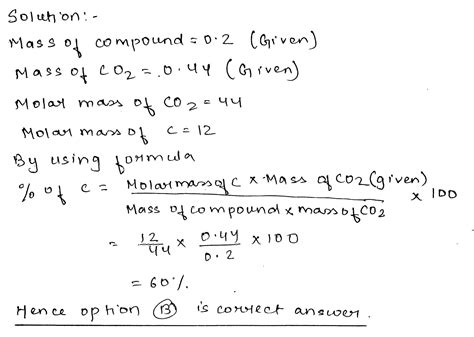 Solution:-
Mass of compound = 0.2 (Given)
Mass of CO2 = 0.44 (Given)
Molar mass of CO2 = 44
Molar mass of C = 12
By using formula
% of C = Molar mass of C x Mass of CO2 (given) / Mass of compound x mass of CO2 x 100
= 12/44 x 0.44/0.2 x 100
= 60%.
Hence option (B) is correct answer.